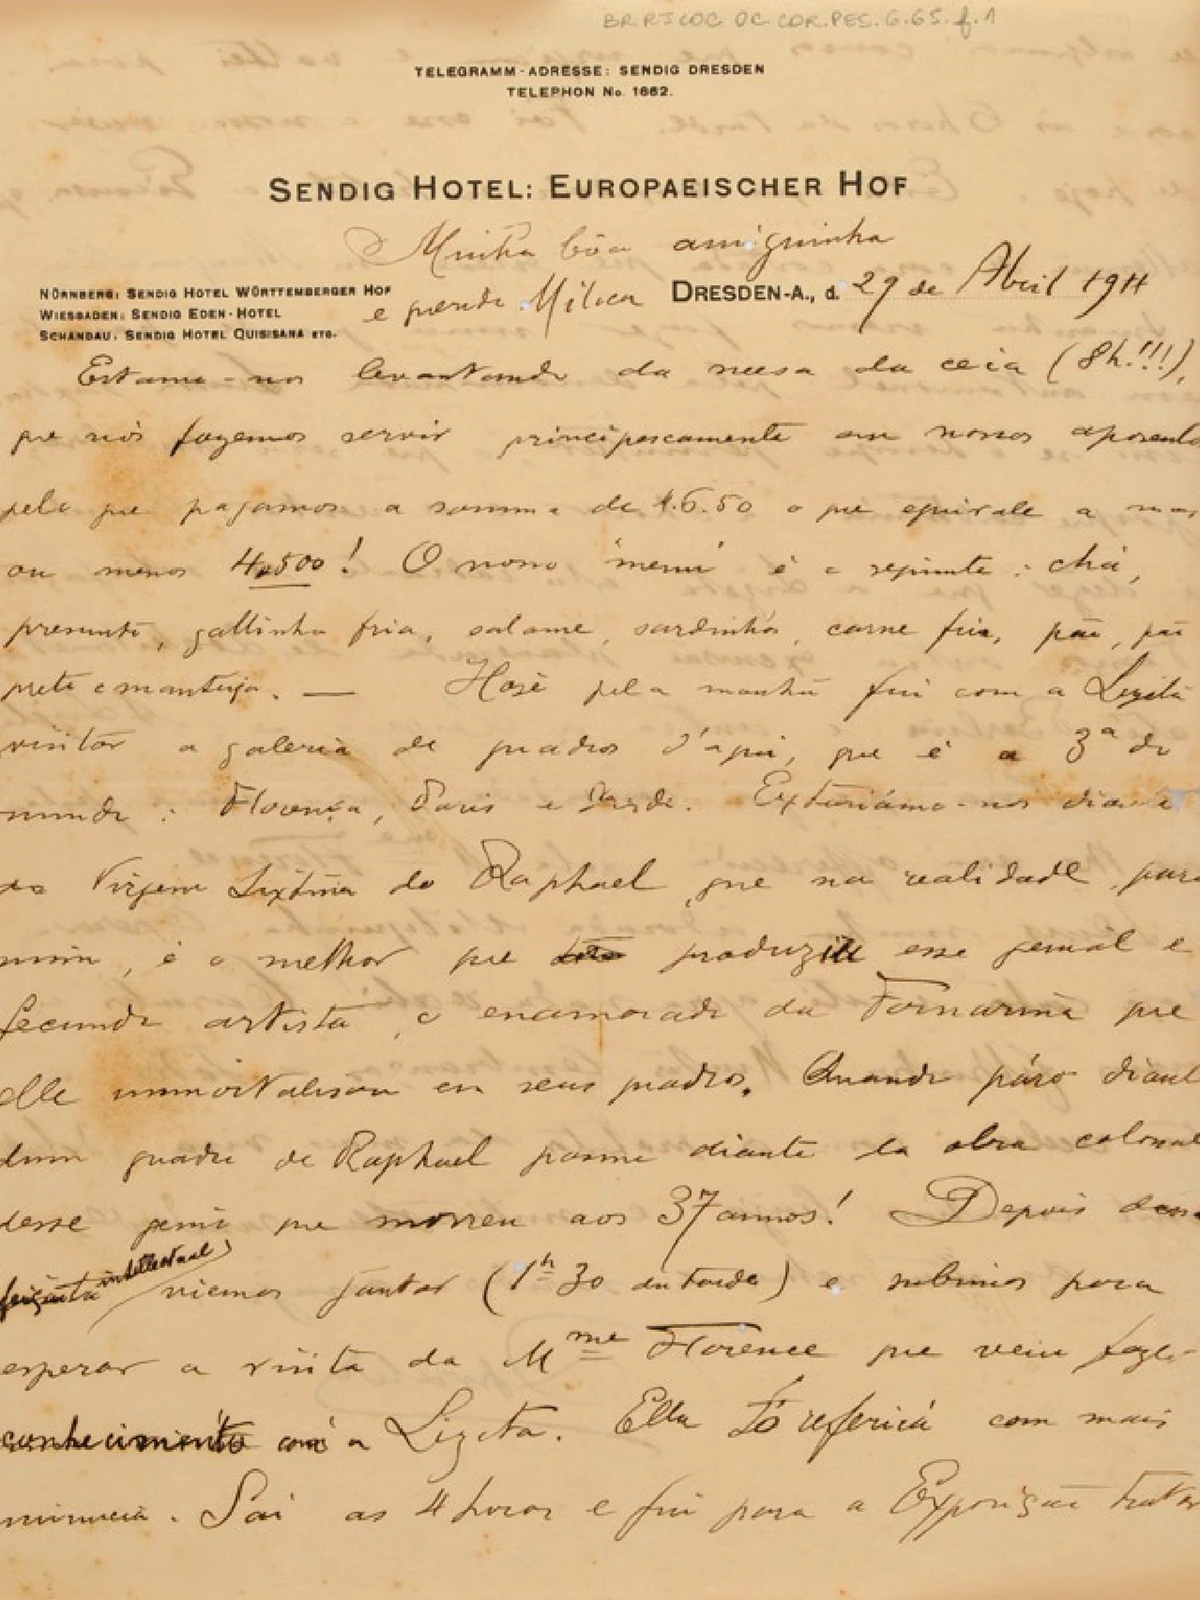 BR.RJ.COC OC.COR.PES.6.65.f.1
TELEGRAMM-ADRESSE: SENDIG DRESDEN
TELEPHON No. 1662.
SENDIG HOTEL: EUROPAEISCHER HOF
Minha bôa amiguinha
NÜRNBERG: SENDIG HOTEL WÜRTTEMBERGER HOF
WIESBADEN: SENDIG EDEN-HOTEL
SCHANDAU: SENDIG HOTEL QUISISANA ETC.
e querida Miloca DRESDEN-A., d. 29 de Abril 1911
Estamo-nos levantando da mesa da ceia (8h!!!),
que nós fazemos servir principescamente em nossos aposento
pelo que pagamos a somma de 4.6.50 o que equivale a mais
ou menos 4,500! O nosso 'menú' é o seguinte: chá,
presunto, gallinha fria, salame, sardinha, carne fria, pão, pão
preto e manteiga. — Hoje pela manhã fui com a Lizeta
visitar a galeria de quadros d'aqui, que é a 3ª do
mundo: Florença, Paris e Dresde. Extasiámo-nos diante
da Virgem Sixtina do Raphael, que na realidade, para
mim, é o melhor que produziu esse genial e
fecundo artista, o enamorado da Fornarina que
elle immortalisou em seus quadros. Quando páro diante
dum quadro de Raphael pasmo diante da obra colossal
desse genio que morreu aos 37 annos! Depois dessa
intellectual,
viemos jantar (1h 30 da tarde) e subimos para
esperar a visita da Mme Florence que veiu fazer
conhecimento com a Lizeta. Ella t'o referirá com mais
minucia. Sai as 4 horas e fui para a Exposição tratar